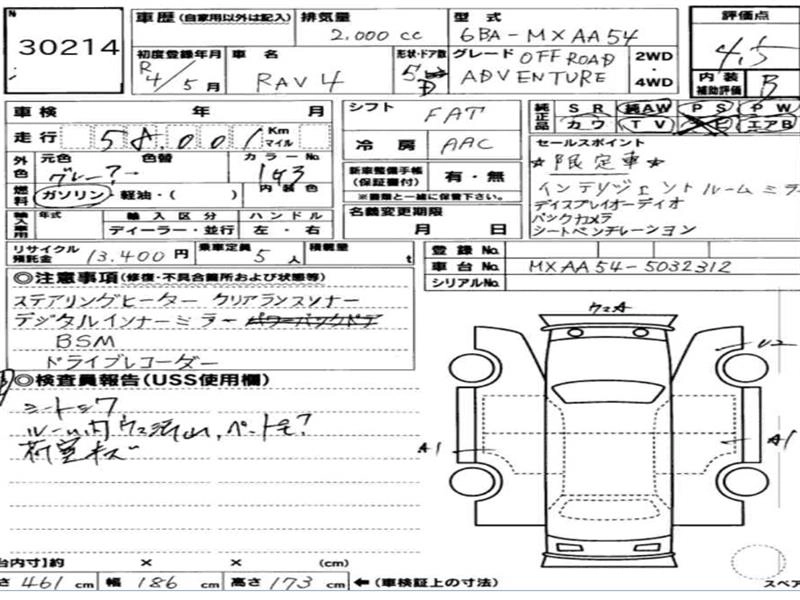 No.
30214
車歴 (自家用以外は記入)
排気量
2,000 cc
型式
6BA-MXAA54
評価点
4.5
初度登録年月
R4/5月
車名
RAV4
形状・ドア数
5D
グレード OFF ROAD
ADVENTURE
2WD
・
4WD
内装
補助評価
B
車検 年 月
シフト FAT
純正品
SR 純AW PS PW
カワ TV エアB
走行 58,001 Km
マイル
冷房 AAC
セールスポイント
☆限定車☆
インテリジェントルームミラ
ディスプレイオーディオ
バックカメラ
シートベンチレーション
外色
元色 色替 カラーNo.
グレー?→ 1G3
新車整備手帳
(保証書付)
有・無
※書類と一緒に保管下さい。
燃料
ガソリン・軽油・( )
内装色
名義変更期限
月 日
輸入車用
年式 輸入区分 ハンドル
ディーラー・並行 左・右
リサイクル
預託金
13,400 円
乗車定員 5 人
積載量 t
登録No.
車台No. MXAA54-5032312
シリアルNo.
◎注意事項 (修復・不具合箇所および状態等)
ステアリングヒーター クリアランスソナー
デジタルインナーミラー パワーバックドア
BSM
ドライブレコーダー
◎検査員報告(USS使用欄)
シートシワ
ルーム内ウス汚れ、ペット毛?
荷室キズ
ウスA
U2
A1
A1
台内寸】約 × × (cm)
さ 461 cm 幅 186 cm 高さ 173 cm ←(車検証上の寸法)
スペア